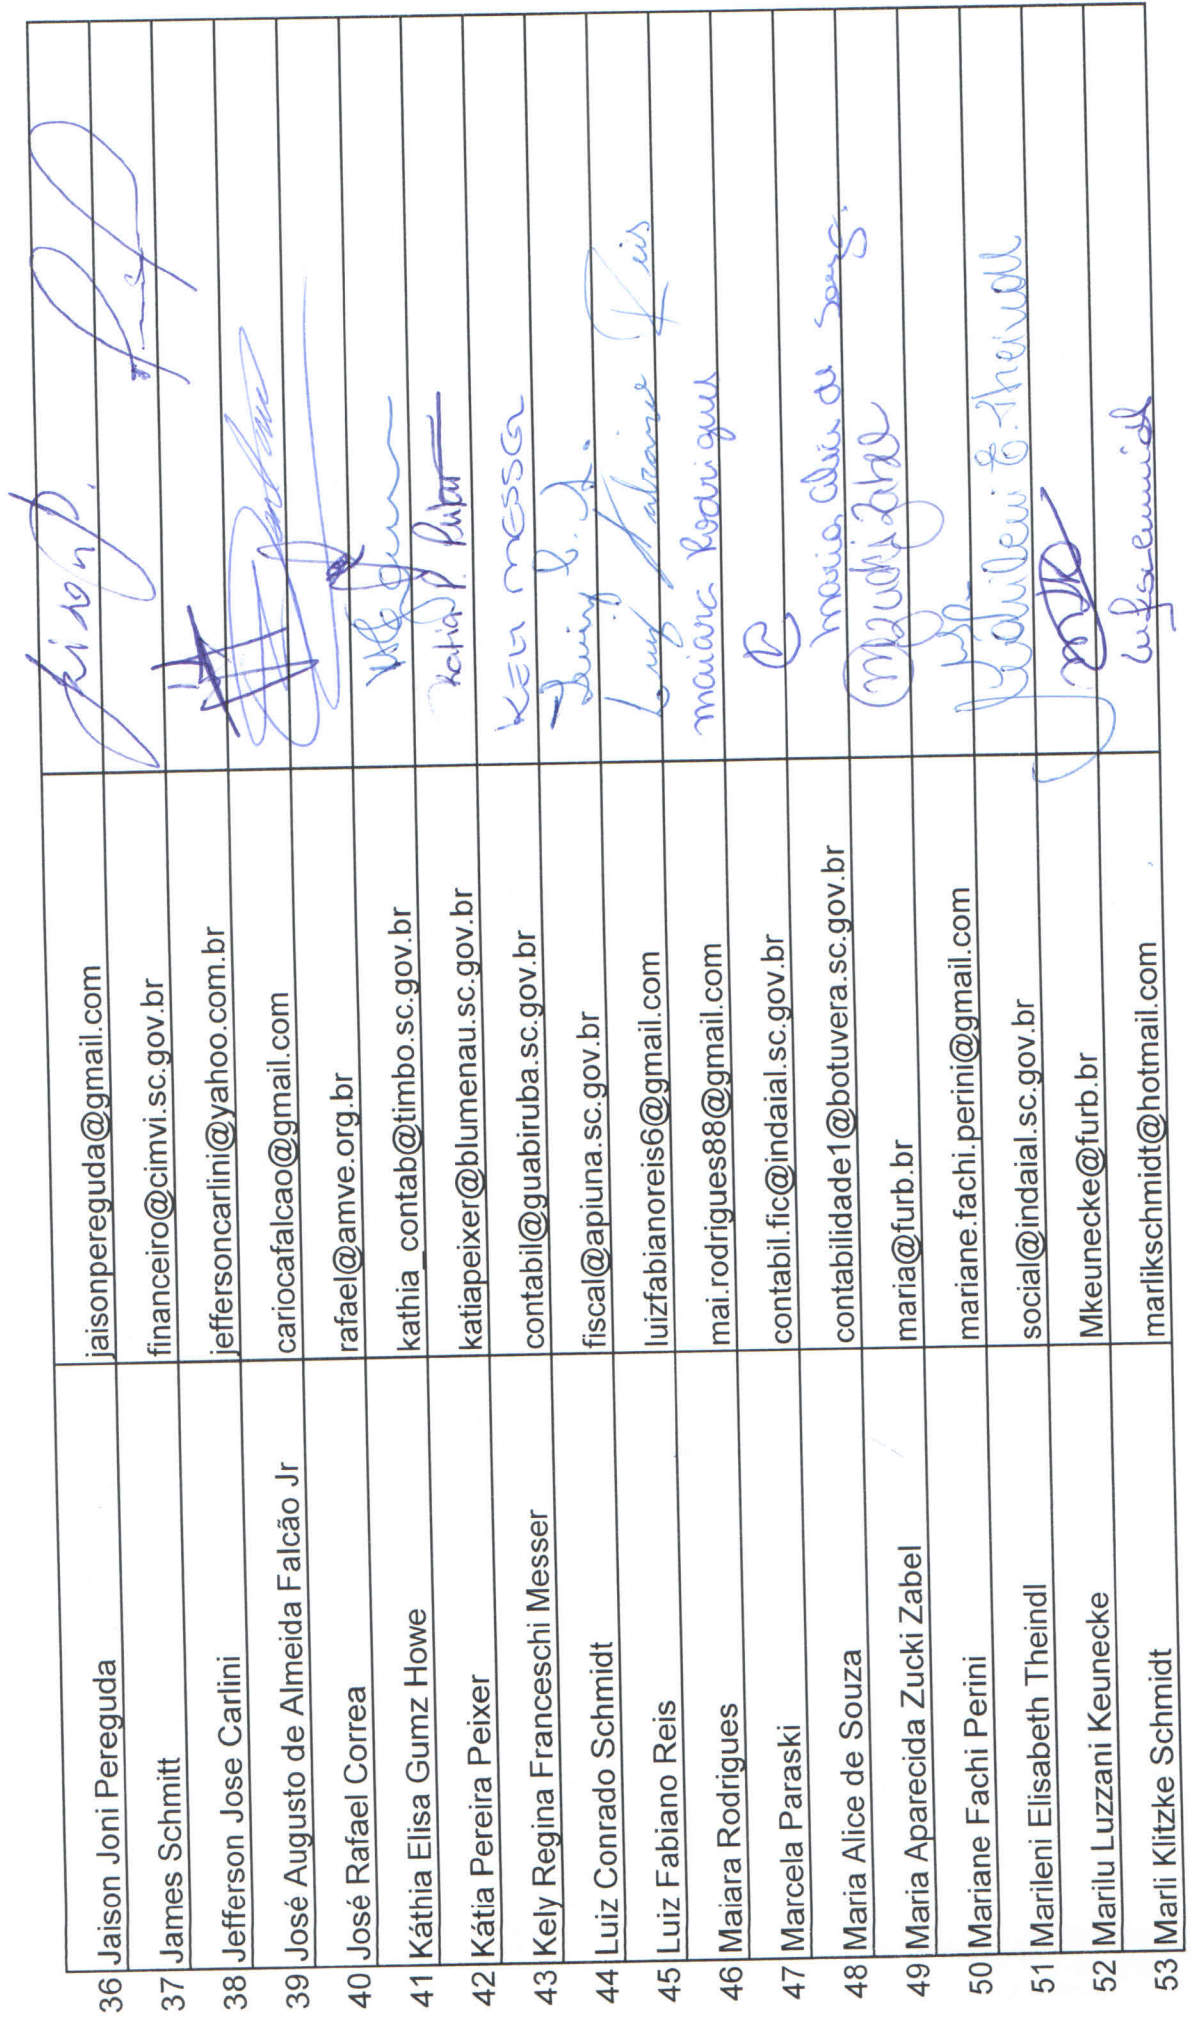 36 Jaison Joni Pereguda jaisonpereguda@gmail.com
37 James Schmitt financeiro@cimvi.sc.gov.br
38 Jefferson Jose Carlini jeffersoncarlini@yahoo.com.br
39 José Augusto de Almeida Falcão Jr cariocafalcao@gmail.com
40 José Rafael Correa rafael@amve.org.br
41 Káthia Elisa Gumz Howe kathia_contab@timbo.sc.gov.br
42 Kátia Pereira Peixer katiapeixer@blumenau.sc.gov.br Katia P.
43 Kely Regina Franceschi Messer contabil@guabiruba.sc.gov.br Kely Messer
44 Luiz Conrado Schmidt fiscal@apiuna.sc.gov.br
45 Luiz Fabiano Reis luizfabianoreis6@gmail.com Luiz Fabiano Reis
46 Maiara Rodrigues mai.rodrigues88@gmail.com Maiara Rodrigues
47 Marcela Paraski contabil.fic@indaial.sc.gov.br
48 Maria Alice de Souza contabilidade1@botuvera.sc.gov.br Maria Alice de Souza.
49 Maria Aparecida Zucki Zabel maria@furb.br MZuckiZabel
50 Mariane Fachi Perini mariane.fachi.perini@gmail.com
51 Marileni Elisabeth Theindl social@indaial.sc.gov.br Marileni E. Theindl
52 Marilu Luzzani Keunecke Mkeunecke@furb.br
53 Marli Klitzke Schmidt marlikschmidt@hotmail.com